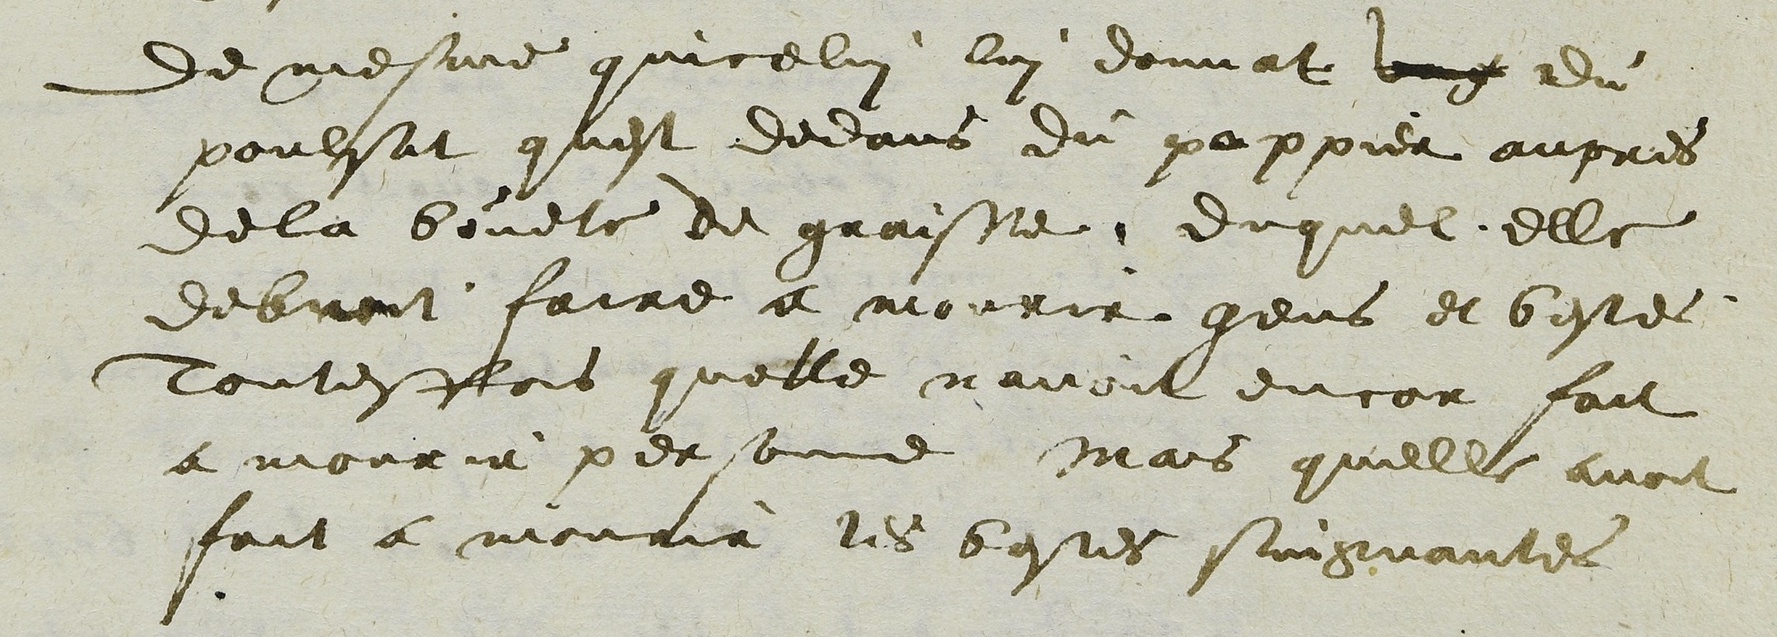 De mesme quiceluy luy donnat du
poulsat quest dedans du pappier aupres
de la bouete de graisse, duquel elle
debvroit faire a mourir gens et bestes
Toutesffois quelle navoit encor fait
a mourir personne Mais quelle avoit
fait a mourir les bestes suigvantes